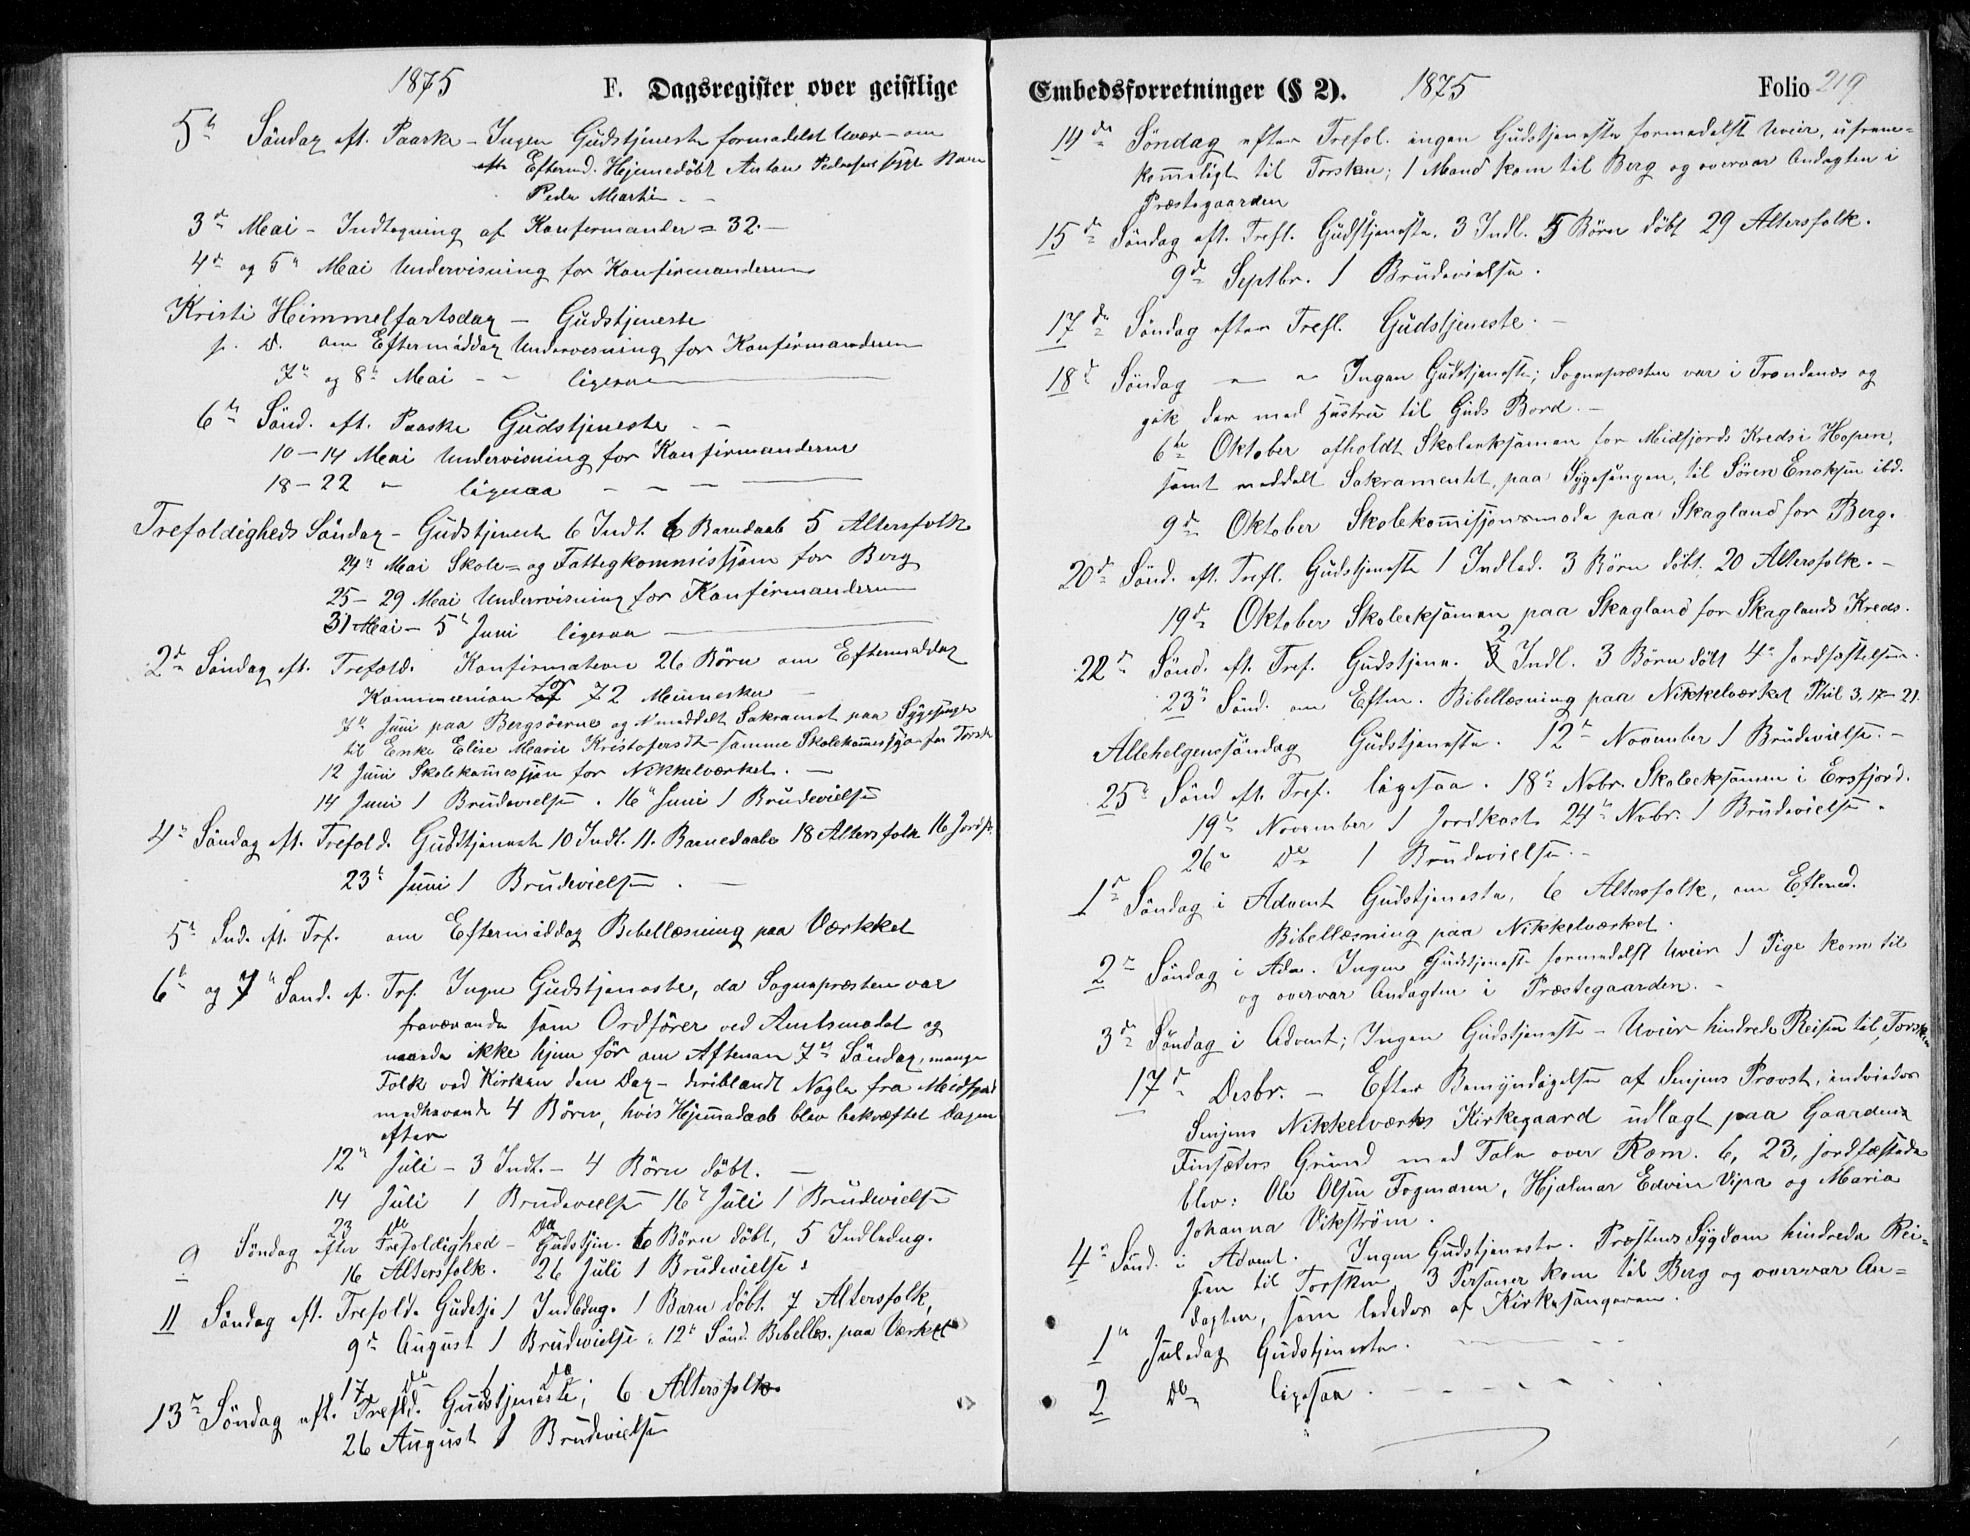 1875 F. Dagsregister over geistlige
5te Söndag eft. Paaske - Ingen Gudstjeneste formedelst Uveir - om
Efterm. Hjemmedöbt Anton Pedersens Barn
Peder Martin
3de Mai - Indtegning af Konfirmander = 32.
4de og 5te Mai Undervisning for Konfirmanderne
Kristi Himmelfartsdag - Gudstjeneste
s. D. om Eftermiddag Undervisning for Konfirmanderne
7de og 8de Mai - - ligesaa
6te Sönd. eft. Paaske Gudstjeneste - -
10-14 Mai Undervisning for Konfirmanderne
18-22 " ligesaa - - -
Trefoldigheds Söndag - Gudstjeneste 6 Indl. 6 Barnedaab 5 Altersfolk
24de Mai Skole= og Fattigkommissjon for Berg
25-29 Mai Undervisning for Konfirmanderne
31 Mai - 5te Juni ligesaa
2den Söndag eft. Trefold. Konfirmation 26 Börn om Eftermiddag
Kommunion 72 Mennesker
7de Juni paa Bergsöerne og meddelt Sakramet paa Sygesengen
til Enke Elise Marie Kristofersdt - samme Skolekommissjon for Torsk
12 Juni Skolekommissjon for Nikkelværket. -
14 Juni 1 Brudevielse. 16de Juni 1 Brudevielse
4de Söndag eft. Trefold. Gudstjeneste 10 Indl. 11. Barnedaab 18 Altersfolk 16 Jordf.
23de Juni 1 Brudevielse. -
5te Snd. eft. Trf. om Eftermiddag Bibellæsning paa Værkket
6te og 7de Sönd. ef. Trf. Ingen Gudstjeneste, da Sognepræsten var
fraværende som Ordförer ved Amtsmödet og
naaede ikke hjem för om Aftenen 7de Söndag, mange
Folk ved Kirken den Dag - deriblandt Nogle fra Midfjord
medhavende 4 Börn, hvis Hjemmedaab blev bekræftet Dagen
efter
12te Juli - 3 Indl. - 4 Börn döbt. -
14 Juli 1 Brudevielse 16de Juli 1 Brudevielse
23 Do Do
9 Söndag efter Trefoldighed - Gudstjen. 6 Börn döbt, 5 Indledng.
16 Altersfolk. 26 Juli 1 Brudevielse.
11 Söndag eft. Trefold. Gudstje 1 Indledng. 1 Barn döbt. 7 Altersfolk,
9de August 1 Brudvielse. 12te Sönd. Bibellæs. paa Værket
17 Do 1 Do
13de Söndag eft. Trefld. Gudstjeneste; 6 Altersfolk.
26 August 1 Brudevielse
Embedsforretninger (§ 2). 1875 Folio 219
14de Söndag efter Trefol. ingen Gudstjeneste formedelst Uveir, ufrem=
kommeligt til Torsken; 1 Mand kom til Berg og overvar Andagten i
Præstegaarden
15de Söndag eft. Trefl. Gudstjeneste. 3 Indl. 5 Börn döbt 29 Altersfolk.
9de Septbr. 1 Brudevielse.
17de Söndag efter Trefl. Gudstjeneste. -
18de Söndag - " - Ingen Gudstjeneste; Sognepræsten var i Trondenæs og
gik der med Hustru til Guds Bord. -
6te Oktober afholdt Skoleeksamen for Midfjords Kreds i Hopen,
samt meddelt Sakramentet, paa Sygesengen, til Sören Enoksen ibd.
9de Oktober Skolekommissjonsmöde paa Skagland for Berg.
20de Sönd. eft. Trefl. Gudstjeneste 1 Indled. 3 Börn döbt. 20 Altersfolk. -
19de Oktober Skoleeksamen paa Skagland for Skaglands Kreds.
22de Sönd. eft. Tref. Gudstjene. 2 Indl. 3 Börn döbt 4 Jordfæstelser.
23de Sönd. om Eftm. Bibellæsning paa Nikkelværket Phil 3, 17-21.
Allehelgenssöndag Gudstjeneste. 12te November 1 Brudevielse. -
25de Sönd eft. Tref. ligesaa. 18de Nobr. Skoleeksamen i Ersfjord.
19de November 1 Jordkast. 24de Nvbr. 1 Brudevielse.
26de Do 1 Brudevielse. -
1ste Söndag i Advent Gudstjeneste, 6 Altersfolk, om Eftmd.
Bibellæsning paa Nikkelværket.
2den Söndag i Adv. Ingen Gudstjeneste formedelst Uveir 1 Pige kom til
og overvar Andagten i Præstegaarden. -
3die Söndag i Advent; Ingen Gudstjeneste - Uveir hindrede Reisen til Torsken
17de Desbr. - Efter Bemyndigelse af Senjens Provst, indviedes
Senjens Nikkelværks Kirkegaard udlagt paa Gaarden
Finsæters Grund med Tale over Rom. 6, 23, jordfæstede
blev: Ole Olsen Fogmoen, Hjalmar Edvin Vipa og Maria
Johanna Vikström.
4de Sönd. i Advent. Ingen Gudstjeneste. Præstens Sygdom hindrede Rei=
sen til Torsken 3 Personer kom til Berg og overvar An=
dagten, som lededes af Kirkesangeren.
1ste Juledag Gudstjeneste. - -
2 Do ligesaa. - - - -